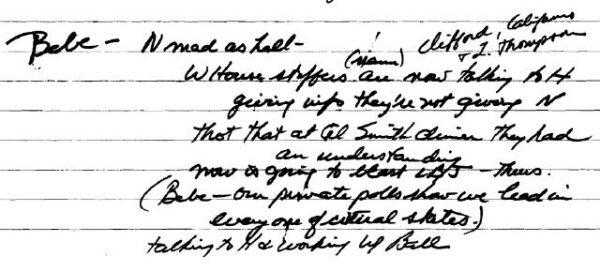 Clifford, Califano
Bebe – N mad as hell – Thompson
(name)
W House staffers are now talking to H
giving info they're not giving N
thot that at Al Smith dinner they had
an understanding
now is going to blast LBJ – thurs.
(Bebe – our private polls show we lead in
every one of critical states.)
talking to H & working w/ Ball